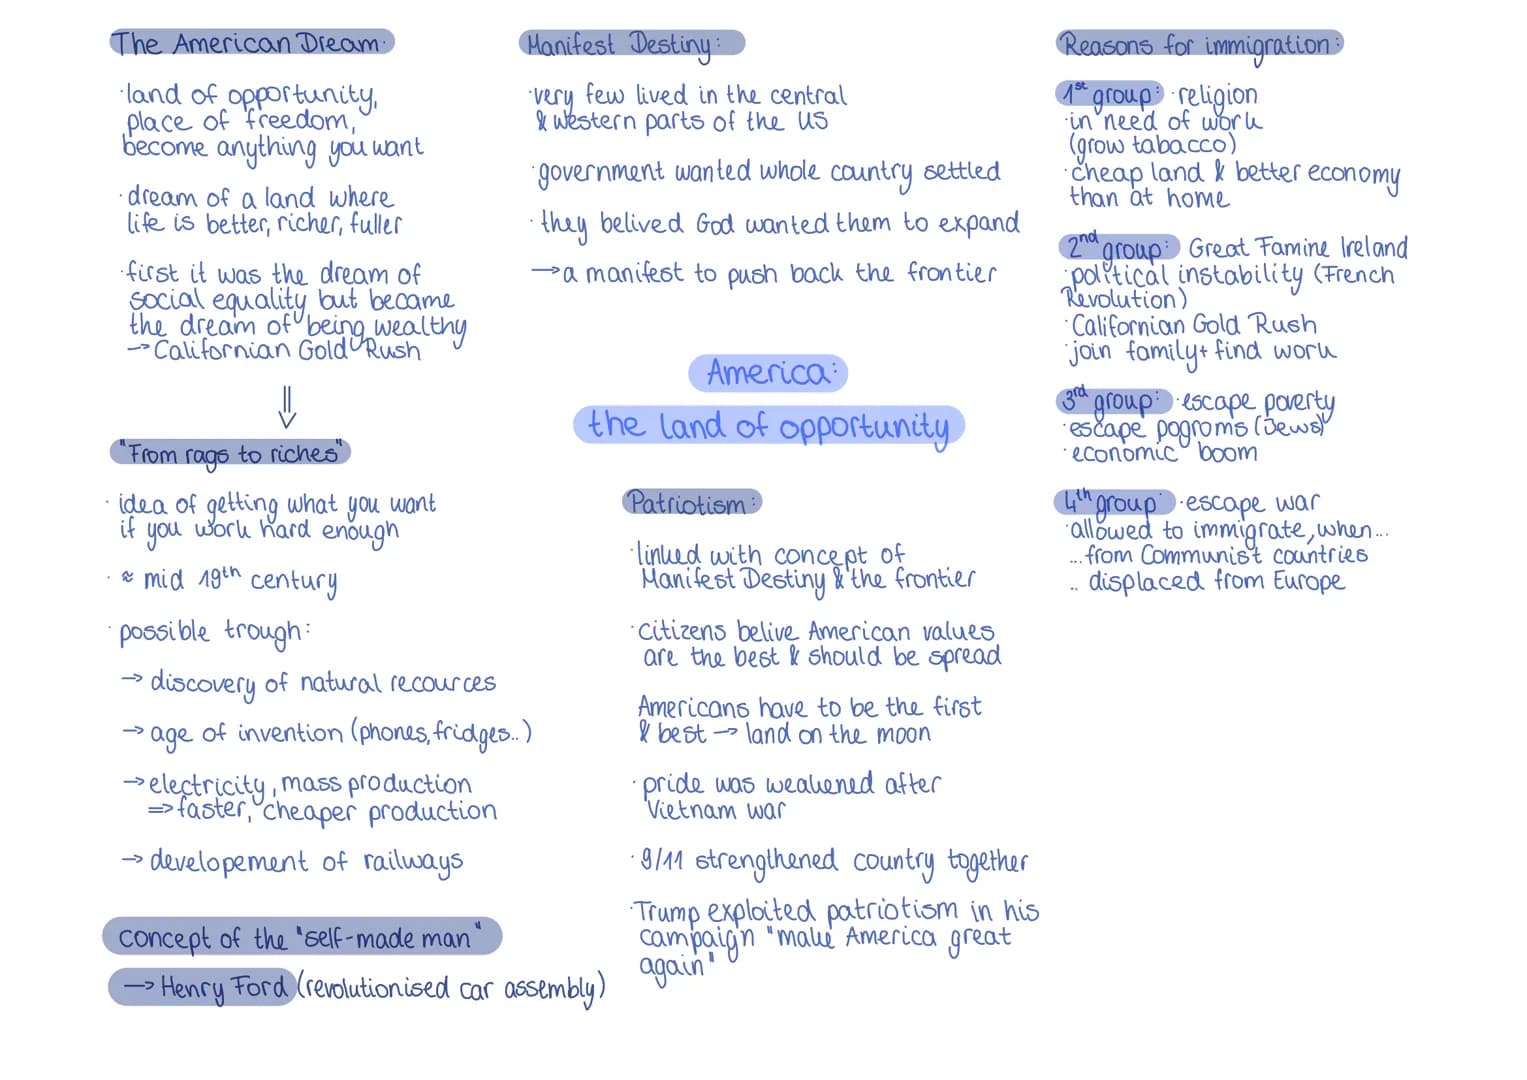 The American Dream:
·land of opportunity,
place of freedom,
become anything you want
·dream of a land where
life is better, richer, fuller
·first it was the dream of
social equality but became
the dream of being wealthy
→ Californian Gold Rush
⇓
"From rags to riches"
· idea of getting what you want
if you work hard enough
· ≈ mid 19th century
· possible trough:
→ discovery of natural recources
→ age of invention (phones, fridges..)
→ electricity, mass production
⇒ faster, cheaper production
→ developement of railways
concept of the "self-made man"
→ Henry Ford (revolutionised car assembly)
Manifest Destiny:
·very few lived in the central
& western parts of the US
·government wanted whole country settled
· they belived God wanted them to expand
→ a manifest to push back the frontier
America:
the land of opportunity
Patriotism:
·linked with concept of
Manifest Destiny & the frontier
·citizens belive American values
are the best & should be spread
Americans have to be the first
& best → land on the moon
· pride was weakened after
Vietnam war
· 9/11 strengthened country together
·Trump exploited patriotism in his
campaign "make America great
again"
Reasons for immigration:
1st group: ·religion
·in need of work
(grow tabacco)
·cheap land & better economy
than at home
2nd group: Great Famine Ireland
·political instability (French
Revolution)
·Californian Gold Rush
·join family + find work
3rd group: ·escape poverty
·escape pogroms (Jews)
·economic boom
4th group: ·escape war
·allowed to immigrate, when...
... from Communist countries
.. displaced from Europe